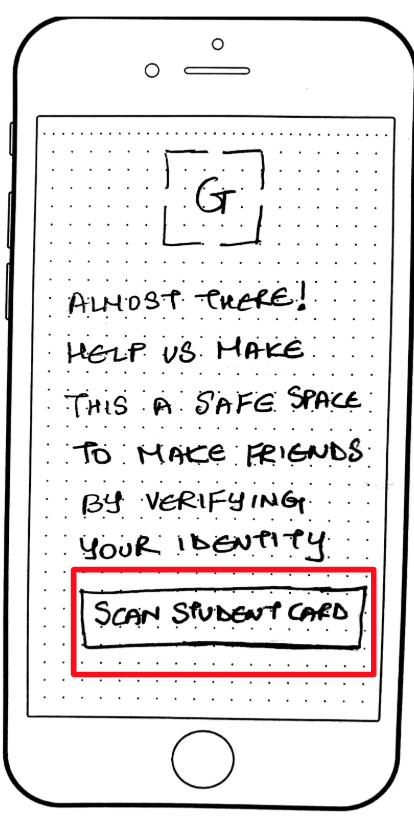 G
ALMOST THERE!
HELP US MAKE
THIS A SAFE SPACE
TO MAKE FRIENDS
BY VERIFYING
YOUR IDENTITY
SCAN STUDENT CARD